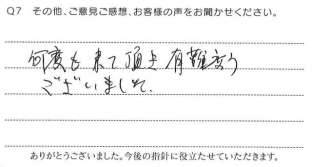 Q7 その他、ご意見ご感想、お客様の声をお聞かせください。
何度も来て頂き有難う
ございました。
ありがとうございました。今後の指針に役立たせていただきます。